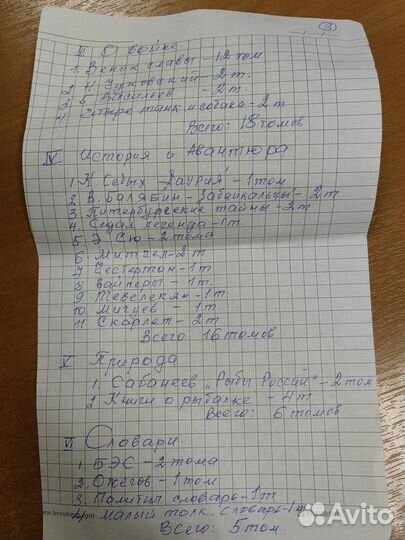 3
III О войне
1. Венок славы – 12 том
2. Н Чуковский – 2 т.
3 Б Васильев – 2 т.
4 Четыре танк и собака – 2 т
Всего: 18 томов
IV История и Авантюра
1. К Седых – Даурия – 1 том
2 В. Балябин – Забайкальцы – 2 т
3 Питербургские тайны – 2 т
4 Седая легенда – 1 т
5 Э. Сю – 2 тома
6 Митчел – 2 т
7 Честертон – 1 т
8 Вайперы – 1 т
9 Тевелекян – 1 т
10 Мигуев – 1 т.
11 Скарлет – 2 т
Всего 16 томов
V Природа
1. Сабанеев „Рыбы России" – 2 том
2 Книги о рыбалке – 4 т
Всего: 6 томов
VI Словари.
1. БЭС – 2 тома
2. Ожегов – 1 том
3. Политич словарь – 1 т
4 Малый толк. словарь – 1 т
Всего: 5 том.
www.brauberg.com
Avito